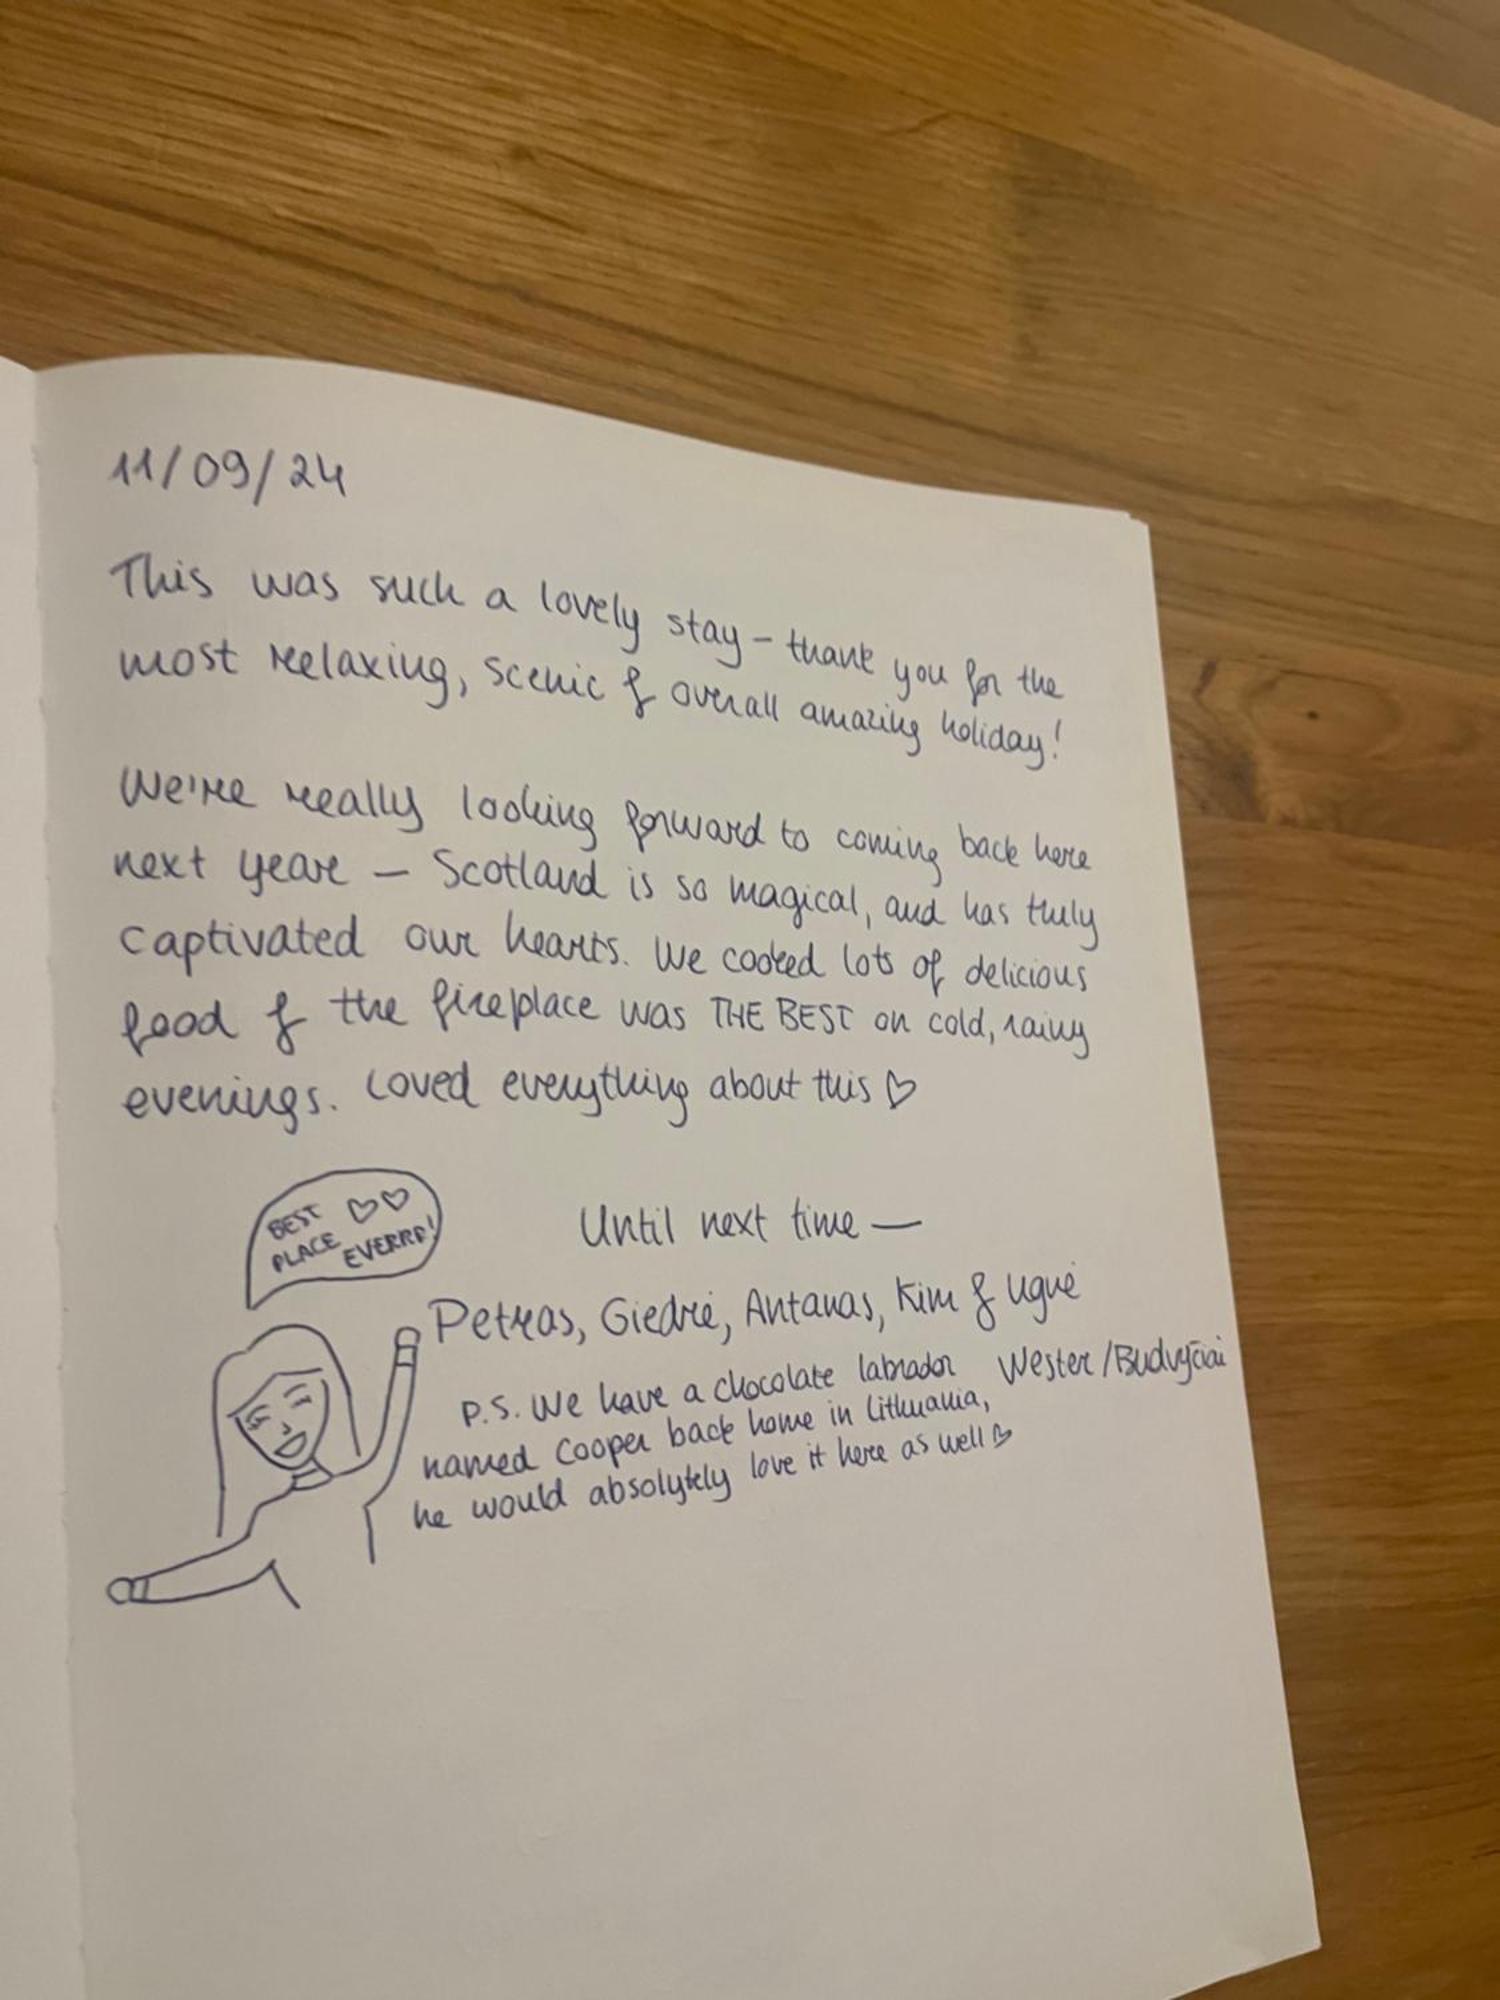 11/09/24
This was such a lovely stay – thank you for the
most relaxing, scenic & overall amazing holiday!
We're really looking forward to coming back here
next year – Scotland is so magical, and has truly
captivated our hearts. We cooked lots of delicious
food & the fireplace was THE BEST on cold, rainy
evenings. Loved everything about this ♡
BEST ♡♡
PLACE EVERRR!
Until next time —
Petras, Giedrė, Antanas, Kim & Ugnė
Wester/Budvyčiai
P.S. We have a chocolate labrador
named Cooper back home in Lithuania,
he would absolytely love it here as well ♡